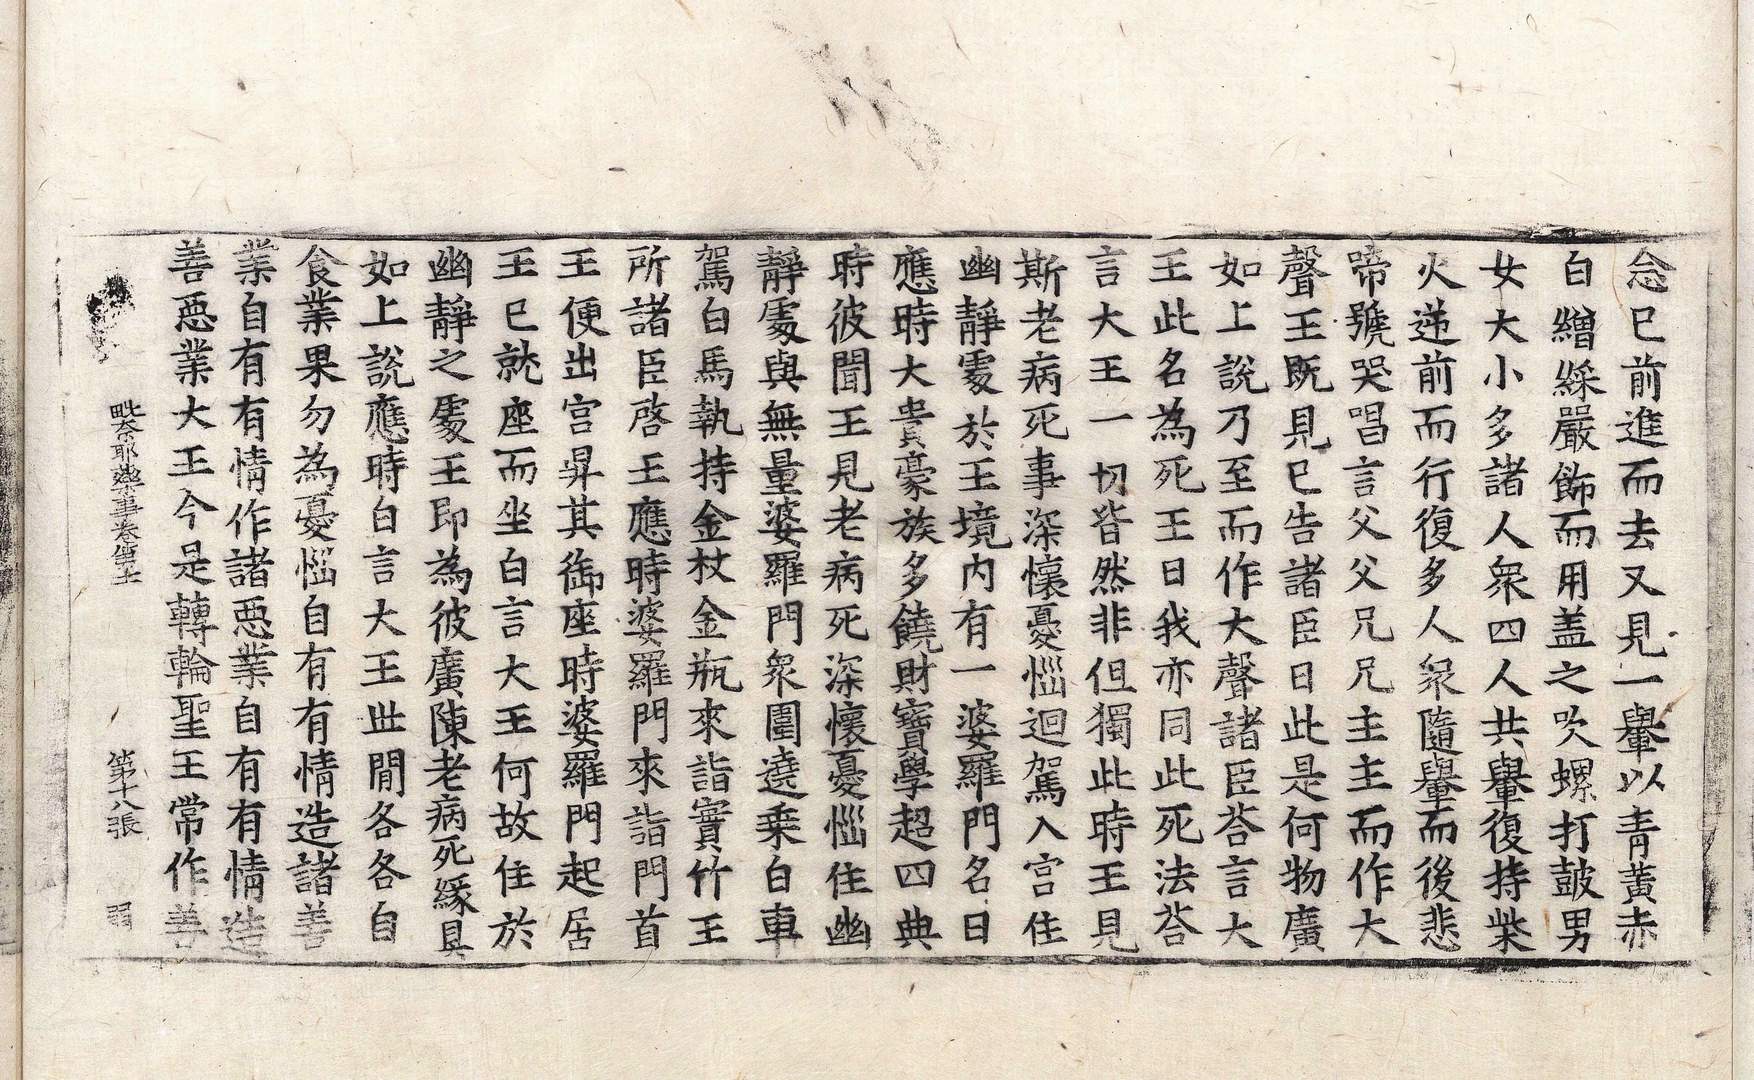 念已前進而去又見一轝以青黃赤
白繒綵嚴飾而用盖之吹螺打鼓男
女大小多諸人衆四人共轝復持柴
火遊前而行復多人衆隨轝而後悲
啼號哭唱言父父兄兄主主而作大
聲王既見已告諸臣曰此是何物廣
如上說乃至而作大聲諸臣荅言大
王此名為死王曰我亦同此死法荅
言大王一切皆然非但獨此時王見
斯老病死事深懷憂惱迴駕入宮住
幽靜處於王境內有一婆羅門名曰
應時大貴豪族多饒財寶學超四典
時彼聞王見老病死深懷憂惱住幽
靜處與無量婆羅門衆圍遶乗白車
駕白馬執持金杖金瓶來詣實竹王
所諸臣啓王應時婆羅門來詣門首
王便出宮昇其御座時婆羅門起居
王已就座而坐白言大王何故住於
幽靜之處王即為彼廣陳老病死縁具
如上說應時白言大王此間各各自
食業果勿為憂惱自有有情造諸善
業自有有情作諸惡業自有有情造
善惡業大王今是轉輪聖王常作善
毗奈耶藥事卷第十二
第十八張